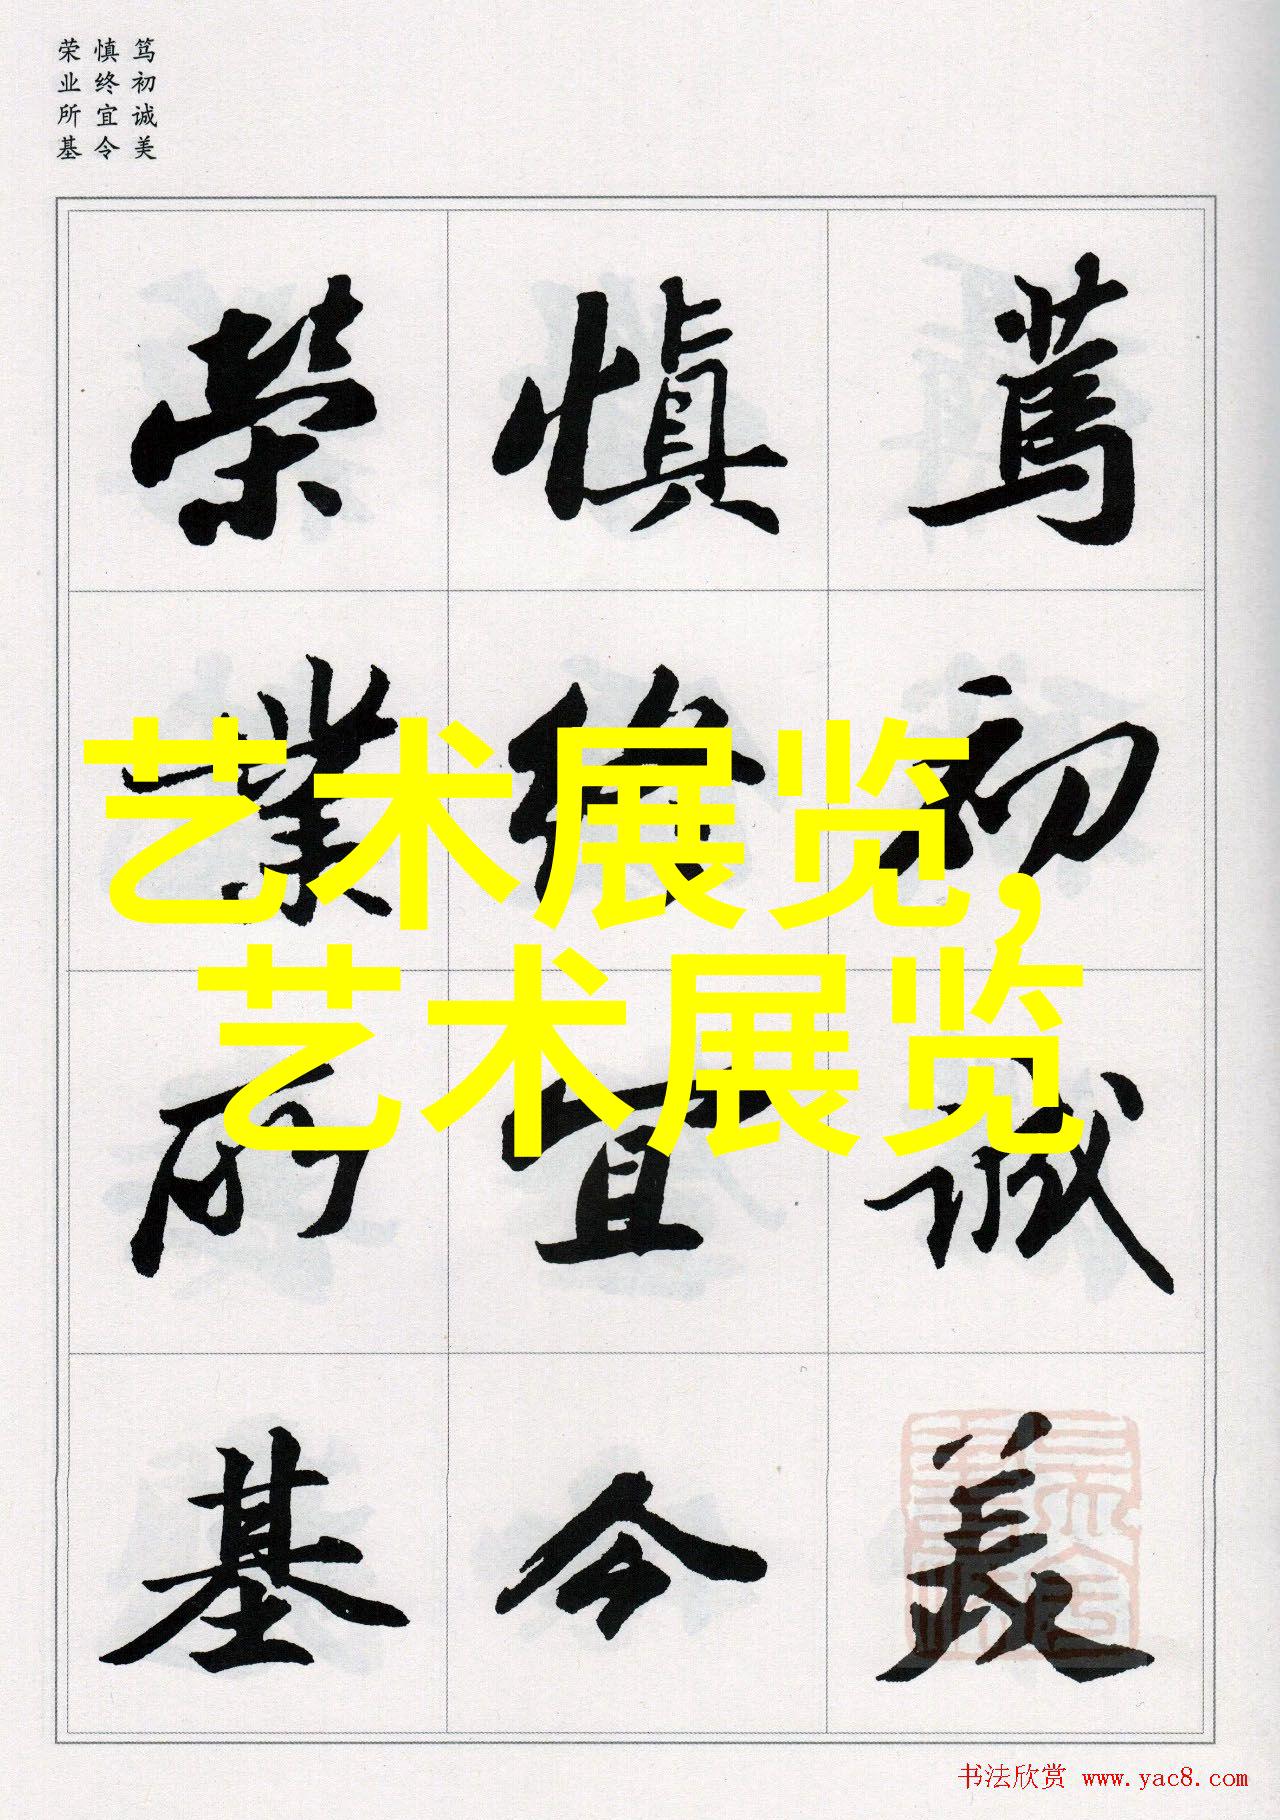 笃初诚美
慎终宜令
荣业所基
篤初诚美
慎终宜令
榮業所基
艺术展览,
艺术展览
书法欣赏 www.yac8.com